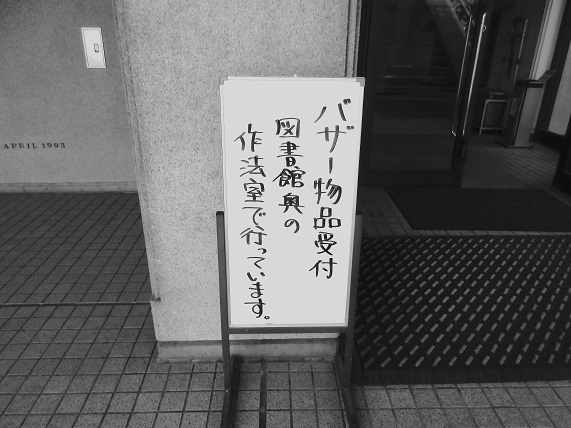 バザー物品受付
図書館奥の
作法室で行っています。
APRIL 1993